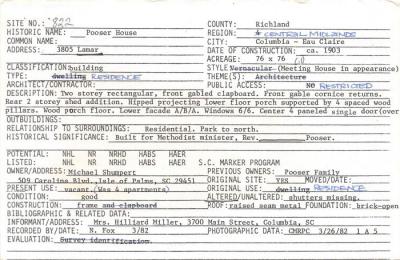 SITE NO. '822 COUNTY: Richland
HISTORIC NAME: Pooser House REGION: * CENTRAL MIDLANDS
COMMON NAME: CITY: Columbia - Eau Claire
ADDRESS: 3805 Lamar DATE OF CONSTRUCTION: ca. 1903
ACREAGE: 76 x 76
CLASSIFICATION: building STYLE: Vernacular (Meeting House in appearance)
TYPE: dwelling RESIDENCE THEME(S): Architectural
ARCHITECT/CONTRACTOR: PUBLIC ACCESS: no RESTRICTED
DESCRIPTION: Two storey rectangular, front gabled clapboard. Front gable cornice returns.
Rear 2 storey shed addition. Hipped projecting lower floor porch supported by 4 spaced wood
pillars. Wood porch floor. Lower facade A/B/A. Windows 6/6. Center 4 paneled single door/over
OUTBUILDINGS:
RELATIONSHIP TO SURROUNDINGS: Residential. Park to north.
HISTORICAL SIGNIFICANCE: Built for Methodist minister, Rev. Pooser.
POTENTIAL: NHL NR NRHD HABS HAER
LISTED: NHL NR NRHD HABS HAER S.C. MARKER PROGRAM
OWNER/ADDRESS: Michael Shumpert PREVIOUS OWNERS: Pooser Family
509 Carolina Blvd., Isle of Palms, SC 29451 ORIGINAL SITE: YES MOVED/DATE:
PRESENT USE: vacant (Was 4 apartments) ORIGINAL USE: dwelling RESIDENCE
CONDITION: good ALTERED/UNALTERED: shutters missing.
CONSTRUCTION: frame and clapboard ROOF: raised seam metal FOUNDATION: brick-open
BIBLIOGRAPHIC & RELATED DATA:
INFORMANT/ADDRESS: Mrs. Hilliard Miller, 3700 Main Street, Columbia, SC
RECORDED BY/DATE: N. Fox 3/82 PHOTOGRAPHIC DATA: CMRPC 3/26/82 1 A 5
EVALUATION: Survey identification.